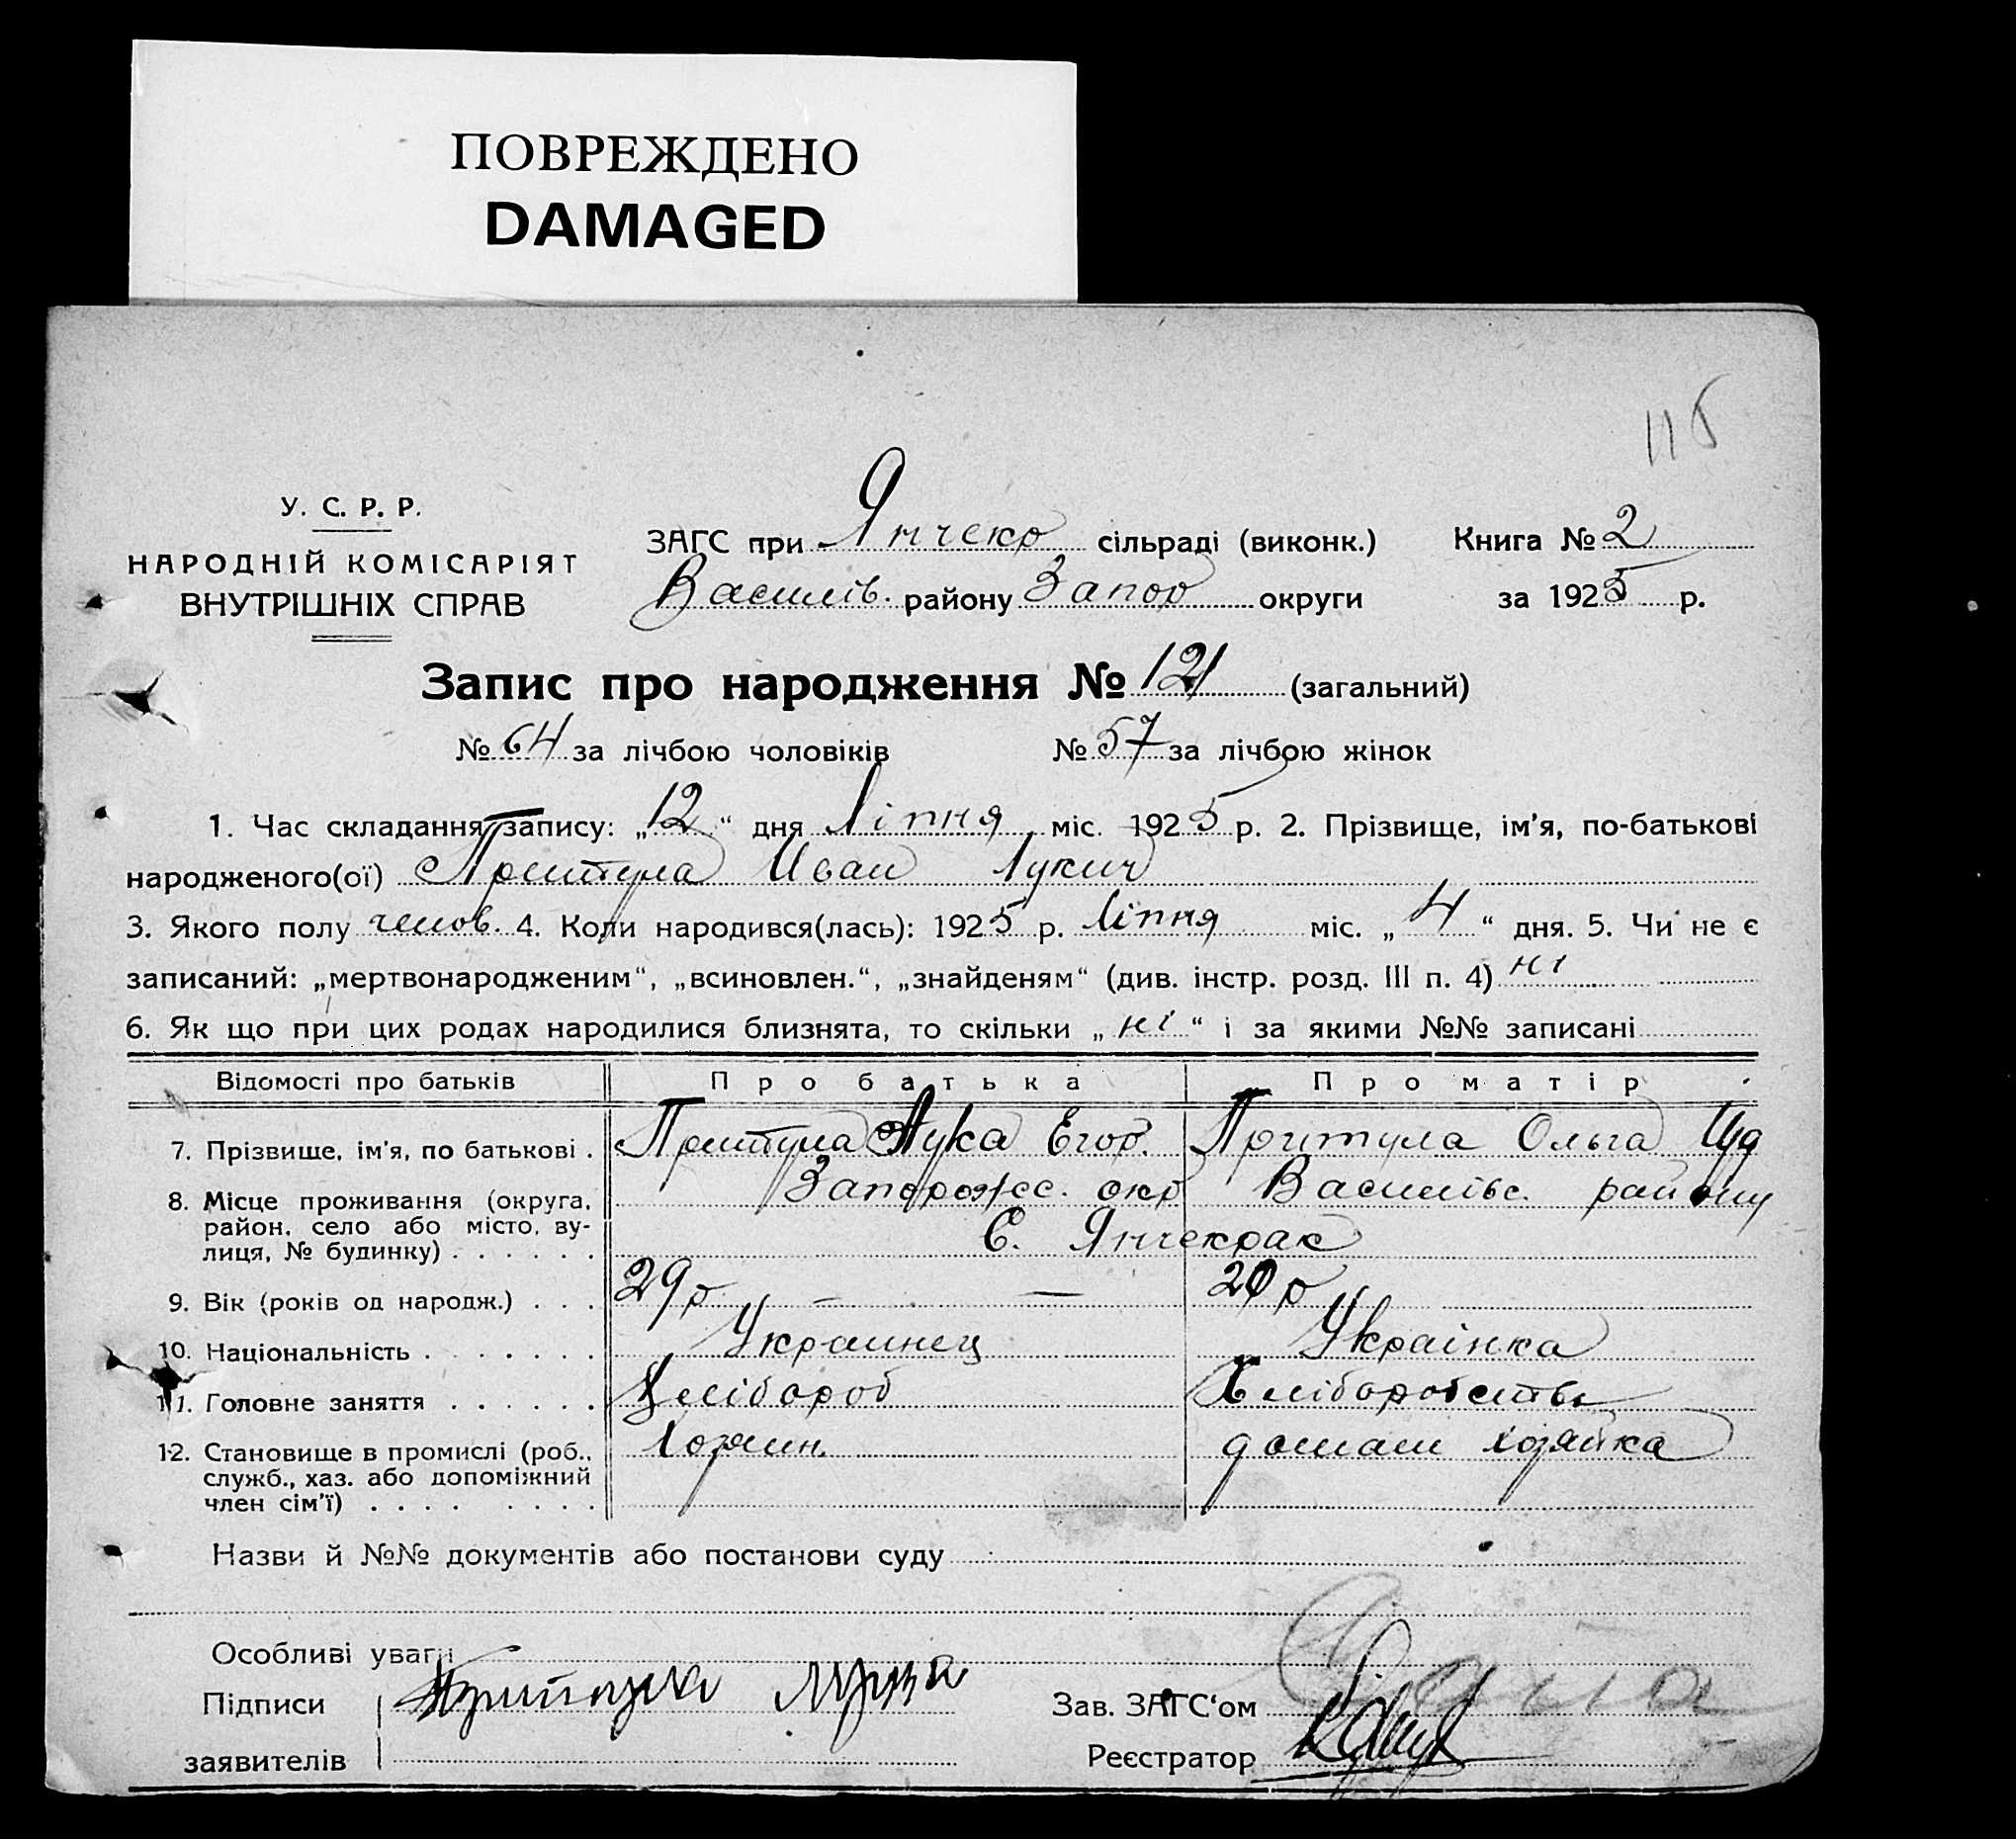 ПОВРЕЖДЕНО
DAMAGED
У. С. Р. Р.
НАРОДНІЙ КОМІСАРІЯТ
ВНУТРІШНІХ СПРАВ
ЗАГС при Янчекр сільраді (виконк.)
Василів. району Запор округи
Книга № 2
за 1925 р.
Запис про народження № 121 (загальний)
№ 64 за лічбою чоловіків № 57 за лічбою жінок
1. Час складання запису: „12“ дня Ліпня міс. 1925 р. 2. Прізвище, ім'я, по-батькові
народженого(ої) Притула Иван Лукич
3. Якого полу челов. 4. Коли народився(лась): 1925 р. Ліпня міс. „4“ дня. 5. Чи не є
записаний: „мертвонародженим“, „всиновлен.“, „знайденям“ (див. інстр. розд. III п. 4) ні
6. Як що при цих родах народилися близнята, то скільки „ні“ і за якими №№ записані
Відомості про батьків Про батька Про матір
7. Прізвище, ім'я, по батькові . Притула Лука Егор. Притула Ольга
8. Місце проживання (округа, Запорожс. окр Василівс. району
район, село або місто, ву-
лиця, № будинку) . . . . . . С. Янчекрак
9. Вік (років од народж.) . . . 29 р 20 р
10. Національність . . . . . . . Украинец Украінка
11. Головне заняття . . . . . . Хлібороб Хліборобство
12. Становище в промислі (роб., Хозяин. домаш хозяйка
служб., хаз. або допоміжний
член сім'ї) . . . . . . . .
Назви й №№ документів або постанови суду
Особливі уваги
Підписи Притула Лука Зав. ЗАГС'ом
заявителів Реєстратор